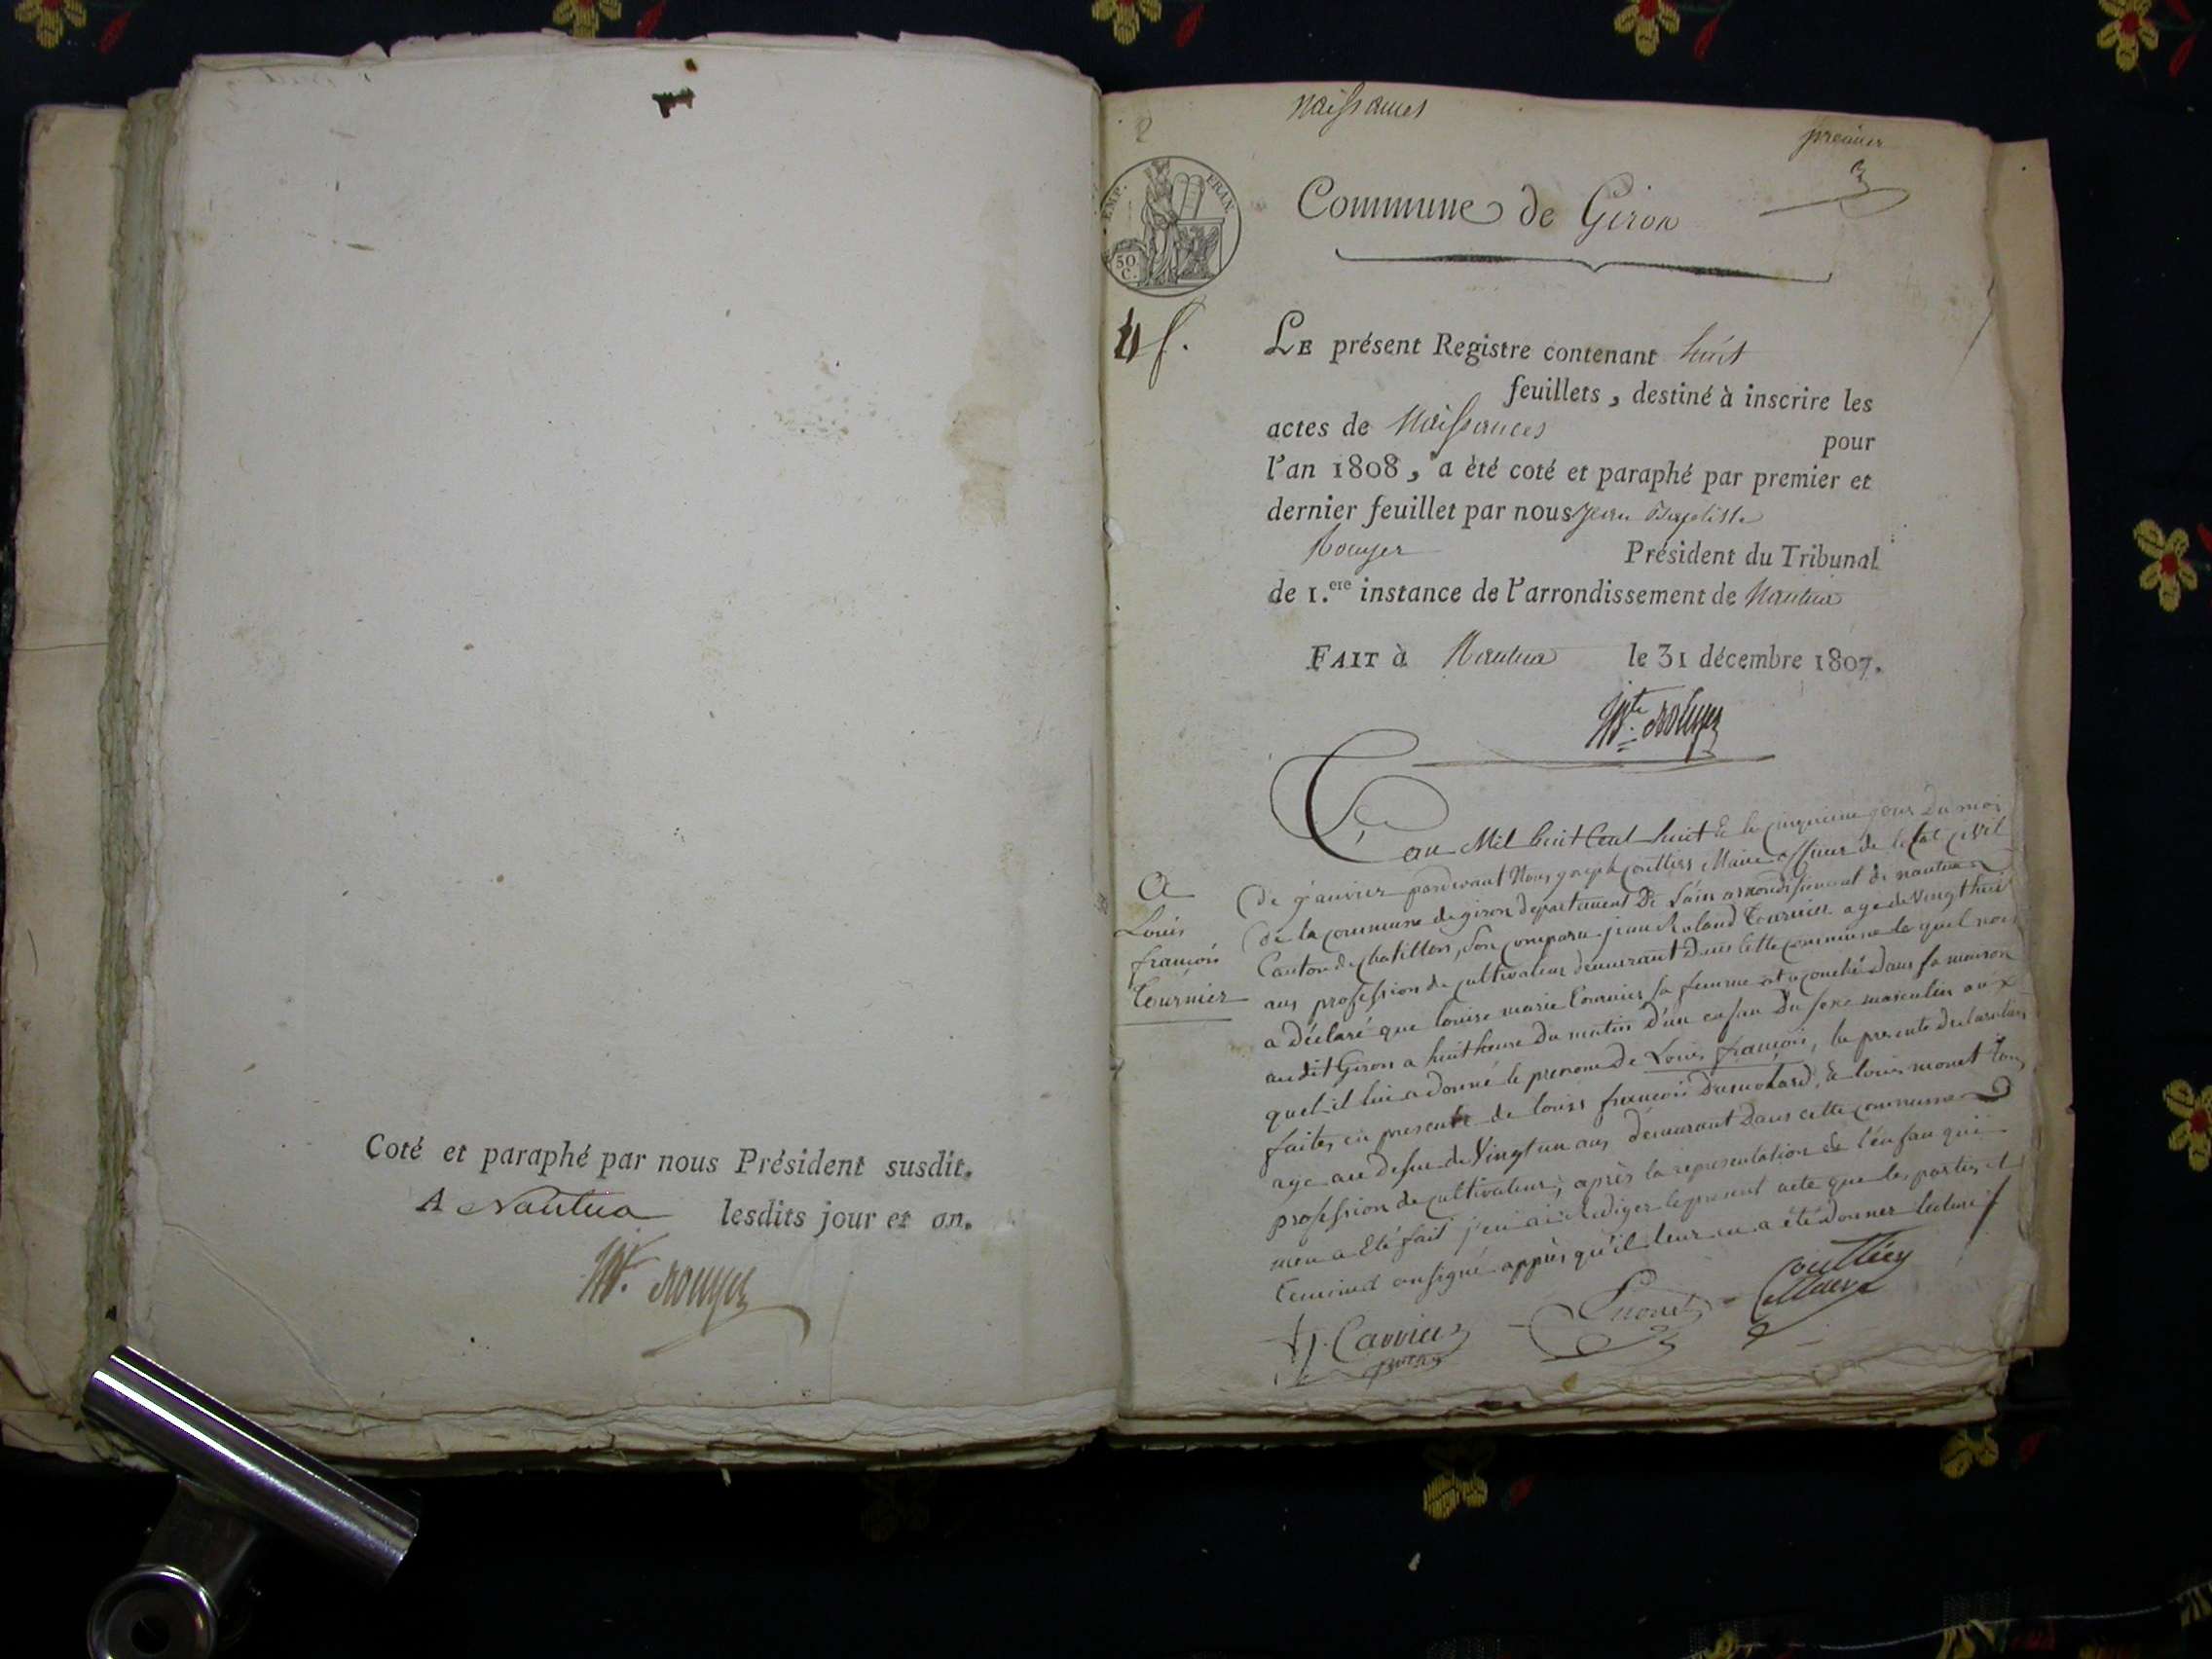 Coté et paraphé par nous Président susdit.
A Nantua lesdits jour et an.
Jnt. Rouyer
2
naissances
premier
EMP. FRAN.
50
C.
Commune de Giron
LE présent Registre contenant huit
feuillets, destiné à inscrire les
actes de Naissances pour
l'an 1808, a èté coté et paraphé par premier et
dernier feuillet par nous Jean Baptiste
Rouyer Président du Tribunal
de 1.ere instance de l'arrondissement de Nantua
FAIT à Nantua le 31 décembre 1807.
Rouyer
Lan Mil huit Cent huit & le cinquieme jour du moi
de janvier pardevant Nous joseph coutties Maire officier de letat civil
de la commune de giron departement de l'ain arrondissement de nantua
Canton de chatillon, son comparu jean Roland tournier age de vingt huit
ans profession de cultivateur demeurant dans cette commune le quel nous
a déclaré que louise marie tournier sa femme est acouché dans sa maison
audit Giron a huit heure du matin d'un enfan du sexe masculin aux
quel il lui a donné le prenom de Louis françois, la presente declaration
faites en presente de louis françois dumolard, & louis monet tous
age au desu de vingt un ans demeurant dans cette commune
profession de cultivateur, après la representation de l'enfan qui
men a été fait j'en ai redigez le present acte que les parties et
temoins on signé apprès qu'il leur en a été donner lecture
a
Louis
françois
tournier
Monet
Coutties
Maire